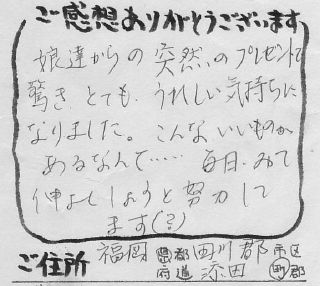 ご感想ありがとうございます
娘達からの突然のプレゼントで
驚き、とても、うれしい気持ちに
なりました。こんないいものが
あるなんて……毎日、みて
仲よくしようと努力して
ます(?)
ご住所 福岡 県都府道 田川郡 市区町郡
添田